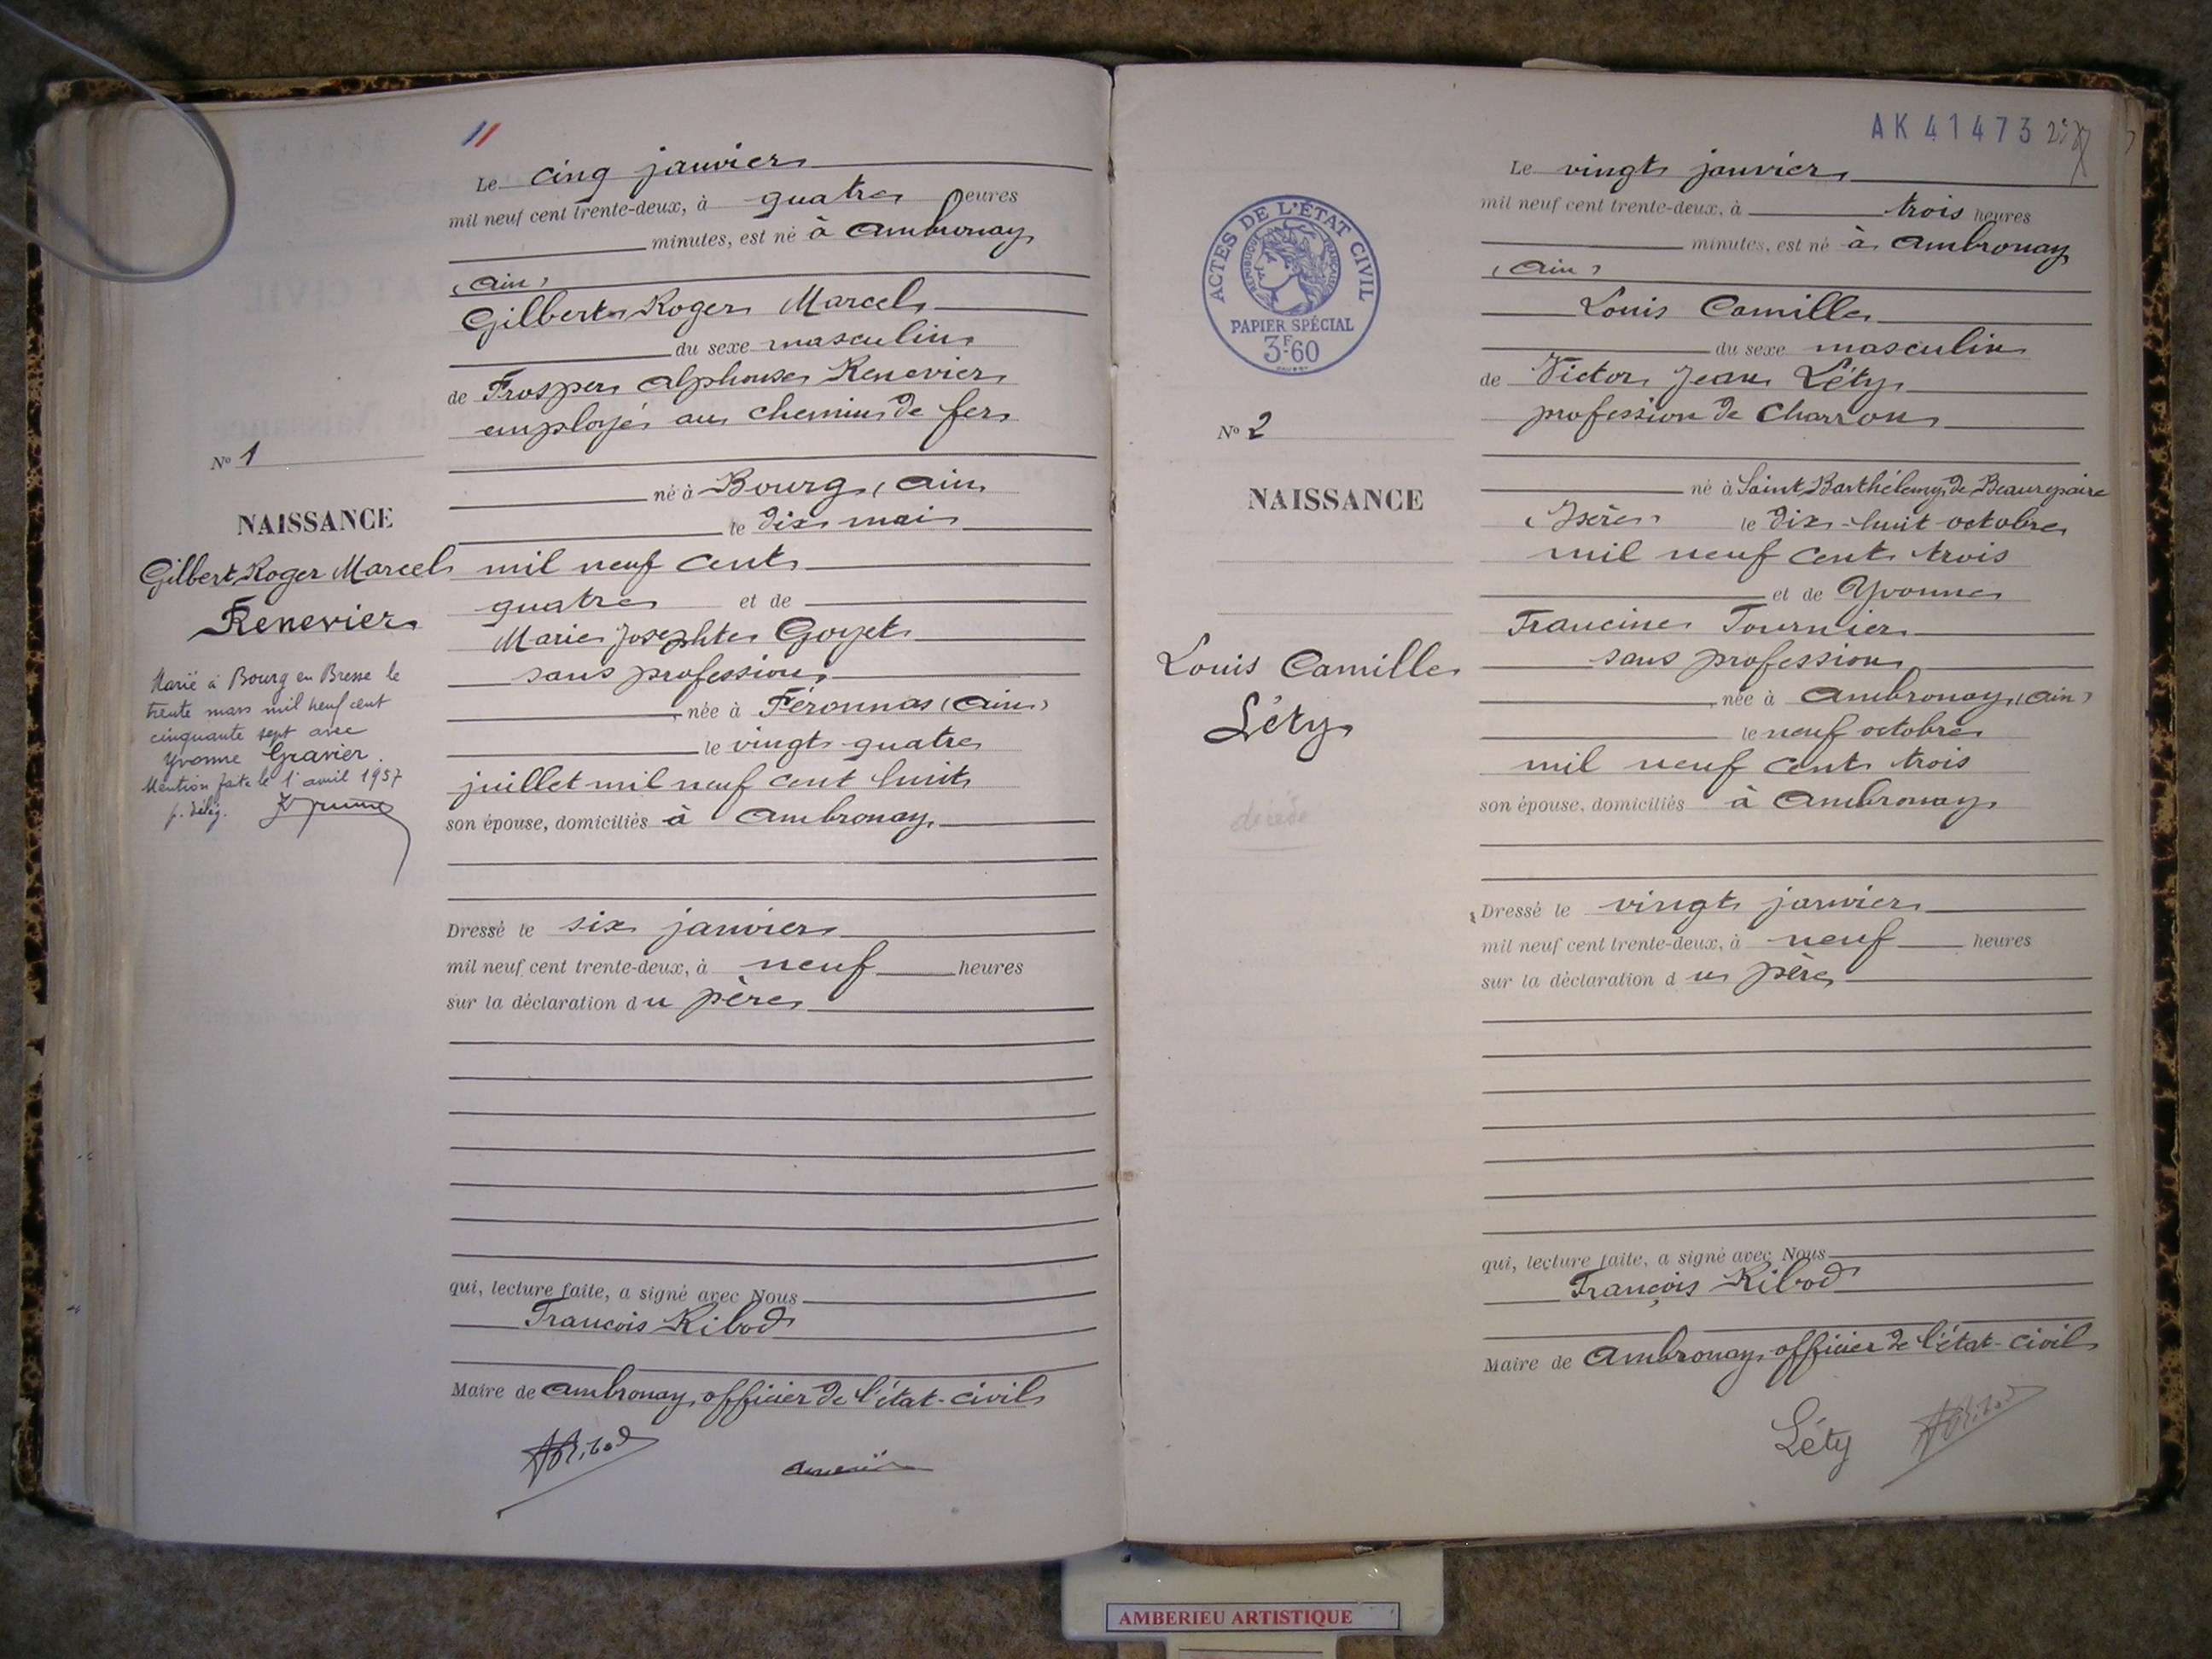 Le cinq janvier
mil neuf cent trente-deux, à quatre heures
minutes, est né à Ambronay
(Ain)
Gilbert Roger Marcel
du sexe masculin
de Prosper Alphonse Renevier
employé au chemin de fer
né à Bourg (Ain
le dix mai
mil neuf cent
quatre et de
Marie Josephte Goyet
sans profession
née à Péronnas (Ain)
le vingt quatre
juillet mil neuf cent huit
son épouse, domiciliés à Ambronay
Dressé le six janvier
mil neuf cent trente-deux, à neuf heures
sur la déclaration du père
qui, lecture faite, a signé avec Nous
François Ribod
Maire de Ambronay, officier de l'état-civil
No 1
NAISSANCE
Gilbert Roger Marcel
Renevier
Marié à Bourg en Bresse le
trente mars mil neuf cent
cinquante sept avec
Yvonne Gravier.
Mention faite le 1er avril 1957
p. délég.
AK 41473
Le vingt janvier
mil neuf cent trente-deux, à trois heures
minutes, est né à Ambronay
(Ain)
Louis Camille
du sexe masculin
de Victor Jean Léty
profession de Charron
né à Saint Barthélemy de Beaurepaire
(Isère) le dix-huit octobre
mil neuf cent trois
et de Yvonne
Francine Tournier
sans profession
née à Ambronay (Ain)
le neuf octobre
mil neuf cent trois
son épouse, domiciliés à Ambronay
Dressé le vingt janvier
mil neuf cent trente-deux, à neuf heures
sur la déclaration du père
qui, lecture faite, a signé avec Nous
François Ribod
Maire de Ambronay, officier de l'état-civil
Léty ARibod
ACTES DE L'ÉTAT CIVIL
RÉPUBLIQUE FRANÇAISE
PAPIER SPÉCIAL
3F60
No 2
NAISSANCE
Louis Camille
Léty
décédé
AMBERIEU ARTISTIQUE